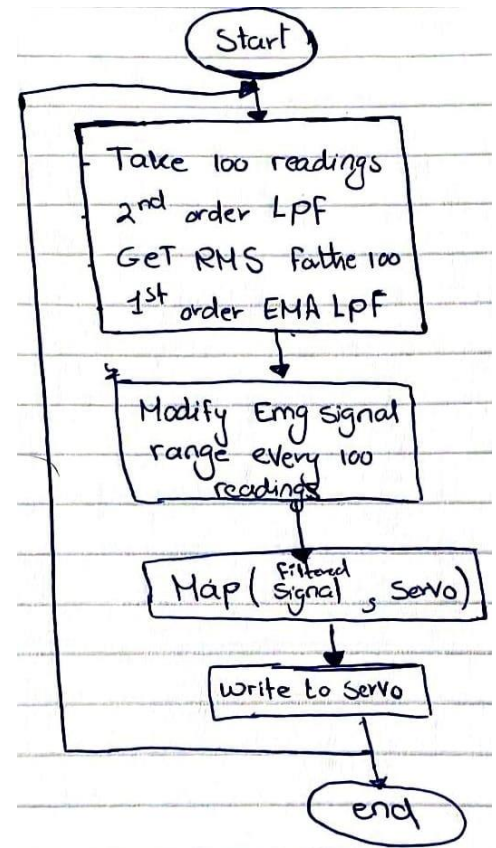 Start
Take 100 readings
2nd order LPF
GeT RMS fathe 100
1st order EMA LPF
Modify Emg signal
range every 100
readings
Map ( filtered signal , servo )
write to servo
end